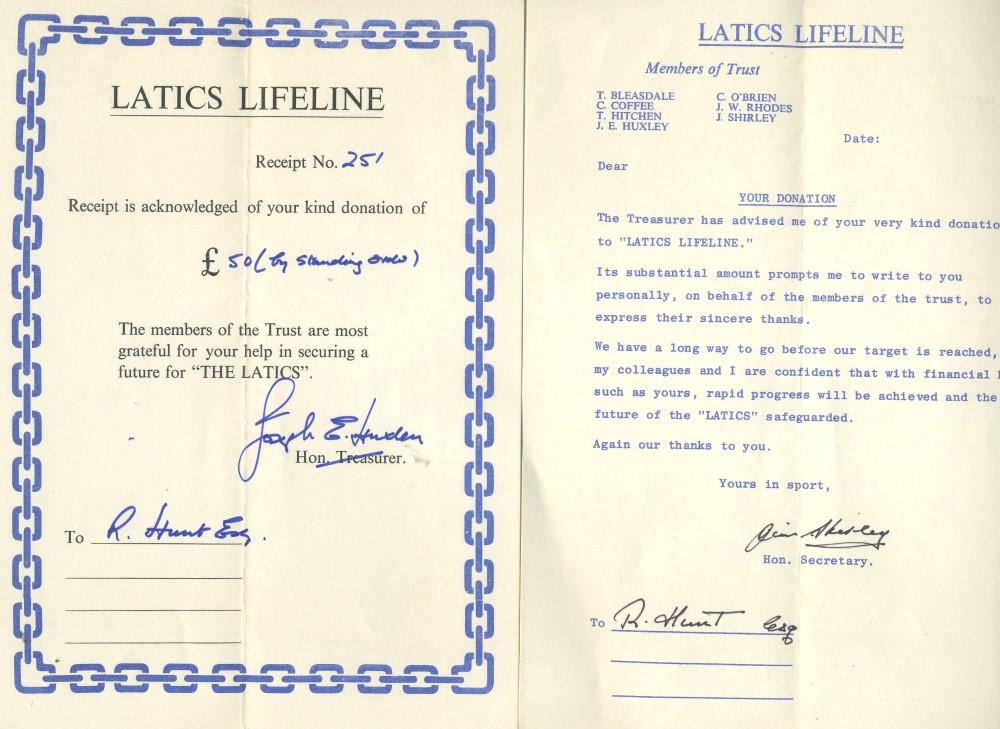 LATICS LIFELINE
Receipt No. 251
Receipt is acknowledged of your kind donation of
£ 50 (by standing order)
The members of the Trust are most
grateful for your help in securing a
future for "THE LATICS".
Joseph E. Huxley
Hon. Treasurer.
To R. Hunt Esq.
LATICS LIFELINE
Members of Trust
T. BLEASDALE
C. COFFEE
T. HITCHEN
J. E. HUXLEY
C. O'BRIEN
J. W. RHODES
J. SHIRLEY
Date:
Dear
YOUR DONATION
The Treasurer has advised me of your very kind donatio
to "LATICS LIFELINE."
Its substantial amount prompts me to write to you
personally, on behalf of the members of the trust, to
express their sincere thanks.
We have a long way to go before our target is reached,
my colleagues and I are confident that with financial
such as yours, rapid progress will be achieved and the
future of the "LATICS" safeguarded.
Again our thanks to you.
Yours in sport,
Jim Shirley
Hon. Secretary.
To R. Hunt Esq